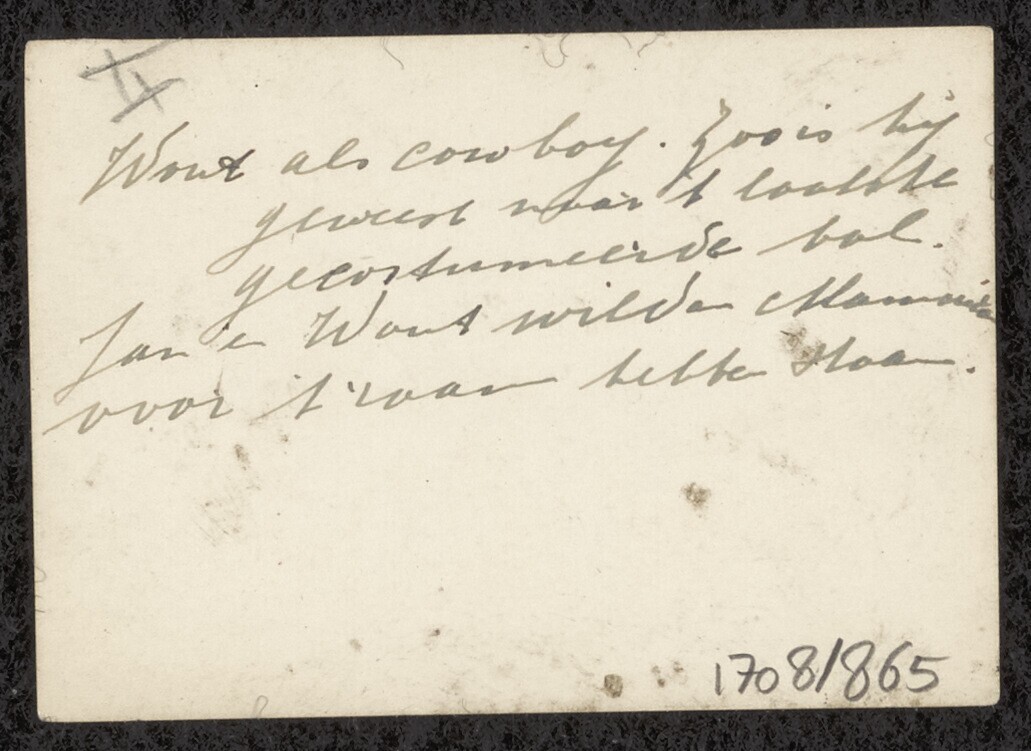 II
Wout als cowboy. Zoo is hij
geweest naar 't laatste
gecostumeerde bal.
Jan en Wout wilden Mammie
voor 't raam hebben staan.
1708/865